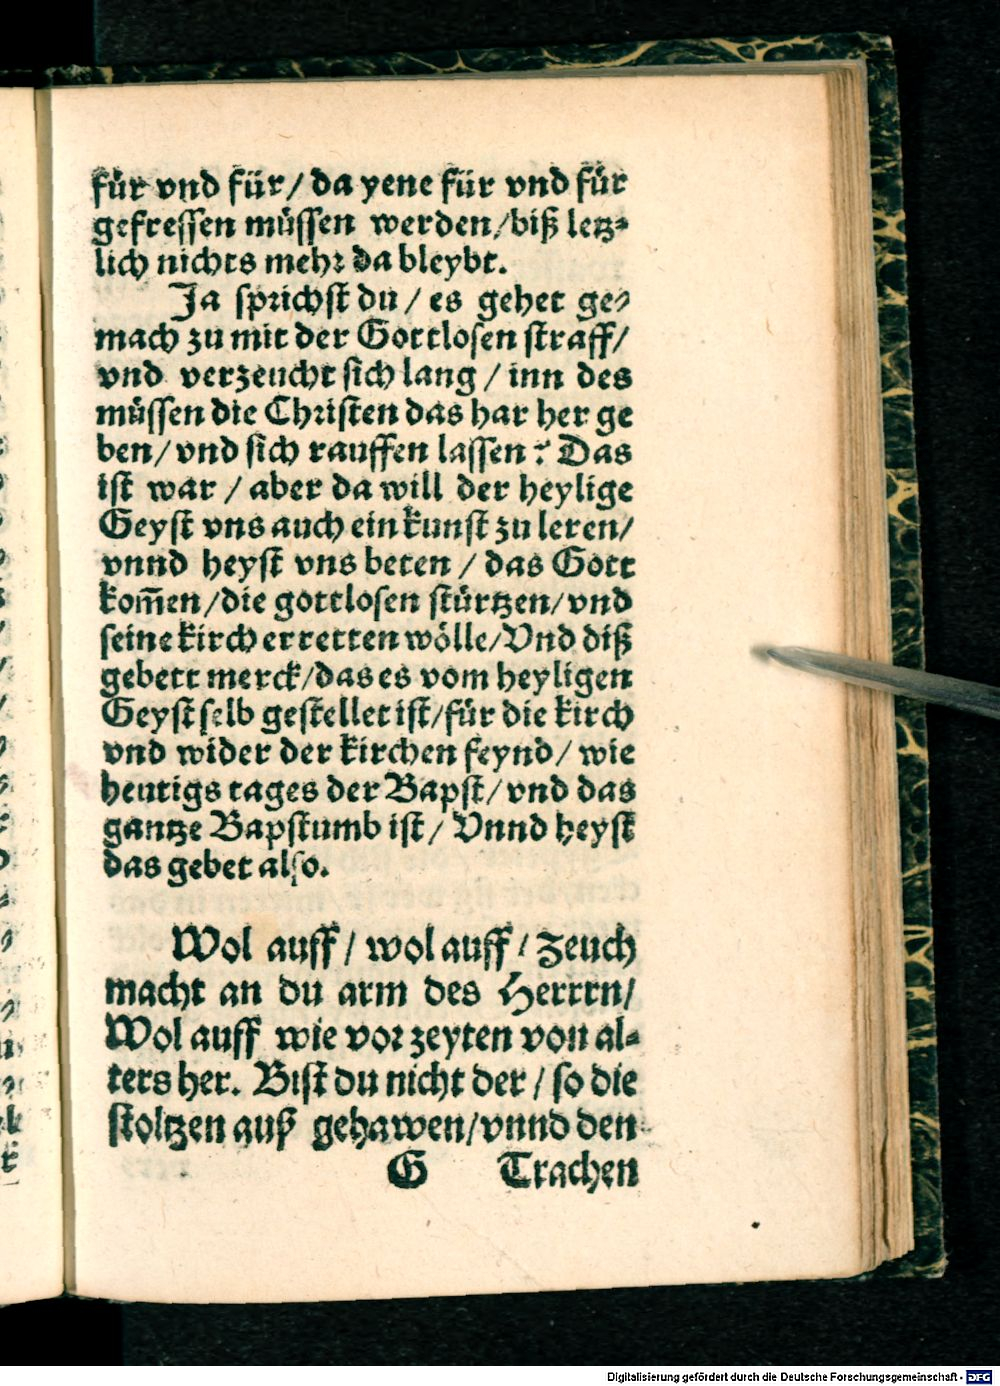 für vnd für/ da yene für vnd für
gefressen müssen werden/biß letz-
lich nichts mehr da bleybt.
Ja sprichst du/ es gehet ge-
mach zu mit der Gottlosen straff/
vnd verzeucht sich lang/ inn des
müssen die Christen das har her ge
ben/ vnd sich rauffen lassen? Das
ist war/ aber da will der heylige
Geyst vns auch ein kunst zu leren/
vnnd heyst vns beten/ das Gott
kom̃en/die gottlosen stürtzen/vnd
seine kirch erretten wölle/Vnd diß
gebett merck/das es vom heyligen
Geyst selb gestellet ist/für die kirch
vnd wider der kirchen feynd/ wie
heutigs tages der Bapst/ vnd das
gantze Bapstumb ist/ Vnnd heyst
das gebet also.
Wol auff/ wol auff/ zeuch
macht an du arm des Herrrn/
Wol auff wie vor zeyten von al-
ters her. Bist du nicht der/ so die
stoltzen auß gehawen/vnnd den
G Trachen
Digitalisierung gefördert durch die Deutsche Forschungsgemeinschaft - DFG